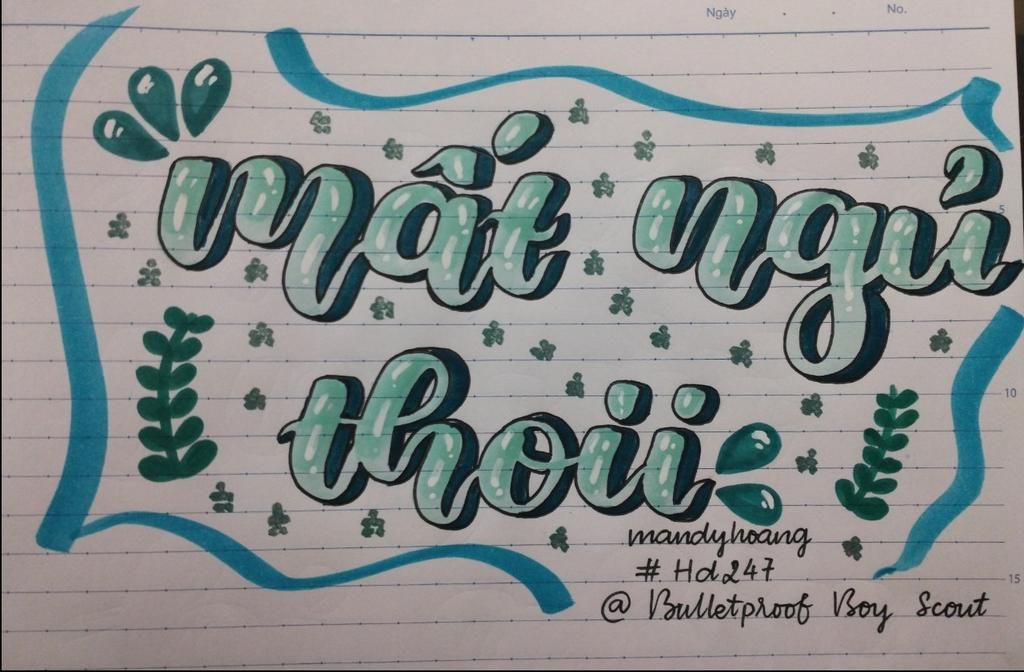 Ngày No.
mất ngủ
5
thoii
10
mandyhoang
# Hd247
15
@ Bulletproof Boy Scout